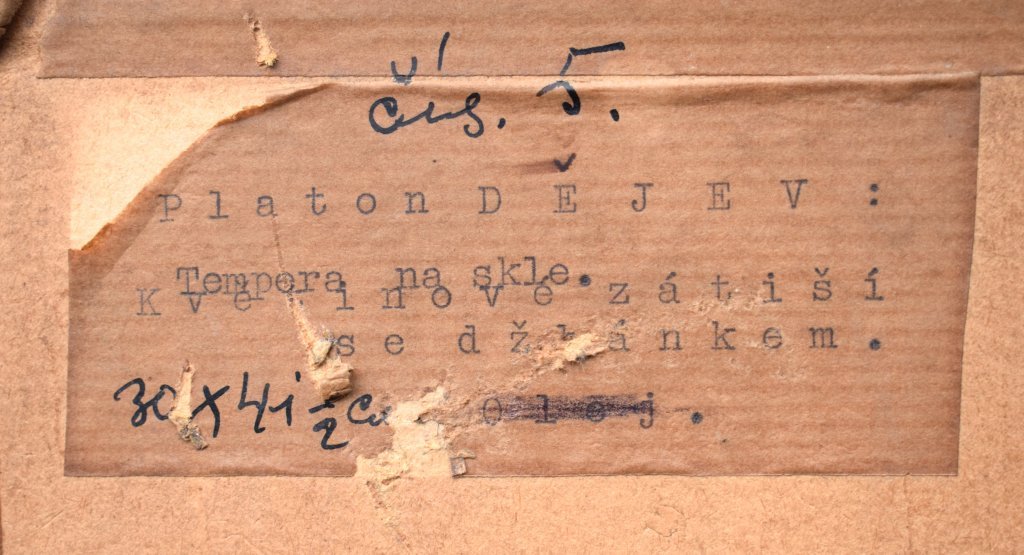 čís. 5.
Platon DĚJEV:
Tempera na skle.
Kvě inové zátiší
se džbánkem.
30 x 41 ½ c
Olej.